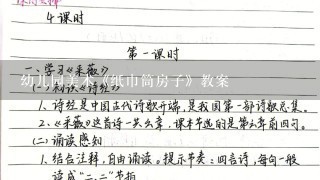 4课时
第一课时
一、学习《采薇》
幼儿园美术《纸巾筒房子》教案
(一)知识《诗经》
1、诗经是中国古代诗歌开端,是我国第一部诗歌总集。
2、《采薇》这首诗一共六章,课本节选的是第六章前四句。
(二)诵读感知
1、结合注释,自由诵读。提示节奏:四言诗,每句一般
读成"二、二"节拍